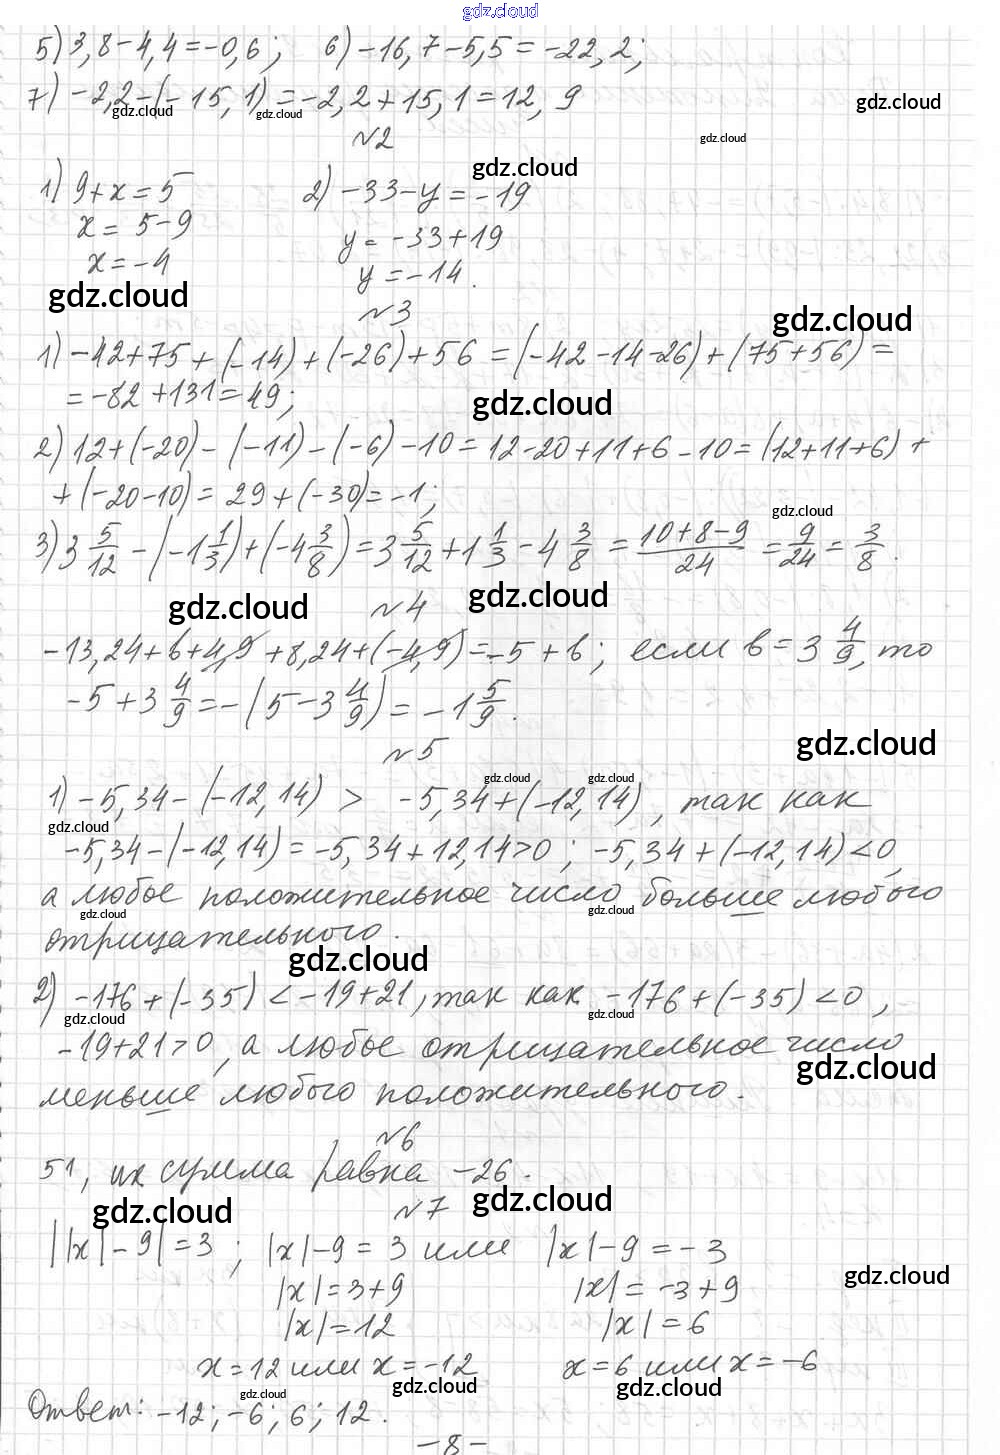 gdz.cloud
5) 3,8-4,4=-0,6; 6) -16,7-5,5=-22,2;
7) -2,2-(-15,1)=-2,2+15,1=12,9
gdz.cloud gdz.cloud gdz.cloud
№2 gdz.cloud
gdz.cloud
1) 9+x=5 2) -33-y=-19
x=5-9 y=-33+19
x=-4 y=-14.
gdz.cloud
№3 gdz.cloud
1) -42+75+(-14)+(-26)+56=(-42-14-26)+(75+56)=
=-82+131=49;
gdz.cloud
2) 12+(-20)-(-11)-(-6)-10=12-20+11+6-10=(12+11+6)+
+(-20-10)=29+(-30)=-1;
gdz.cloud
3) 3 5/12-(-1 1/3)+(-4 3/8)=3 5/12+1 1/3-4 3/8=(10+8-9)/24=9/24=3/8.
gdz.cloud №4 gdz.cloud
-13,24+в+4,9+8,24+(-4,9)=-5+в; если в=3 4/9, то
-5+3 4/9=-(5-3 4/9)=-1 5/9.
№5
gdz.cloud
gdz.cloud gdz.cloud
1) -5,34-(-12,14) > -5,34+(-12,14), так как
gdz.cloud
-5,34-(-12,14)=-5,34+12,14>0; -5,34+(-12,14)<0,
а любое положительное число больше любого
gdz.cloud gdz.cloud
отрицательного.
gdz.cloud
2) -176+(-35)<-19+21, так как -176+(-35)<0,
gdz.cloud gdz.cloud
-19+21>0, а любое отрицательное число
gdz.cloud
меньше любого положительного.
№6
51, их сумма равна -26.
gdz.cloud №7 gdz.cloud
||x|-9|=3; |x|-9=3 или |x|-9=-3
gdz.cloud
|x|=3+9 |x|=-3+9
|x|=12 |x|=6
x=12 или x=-12 x=6 или x=-6
gdz.cloud gdz.cloud gdz.cloud
Ответ: -12; -6; 6; 12.
-8-